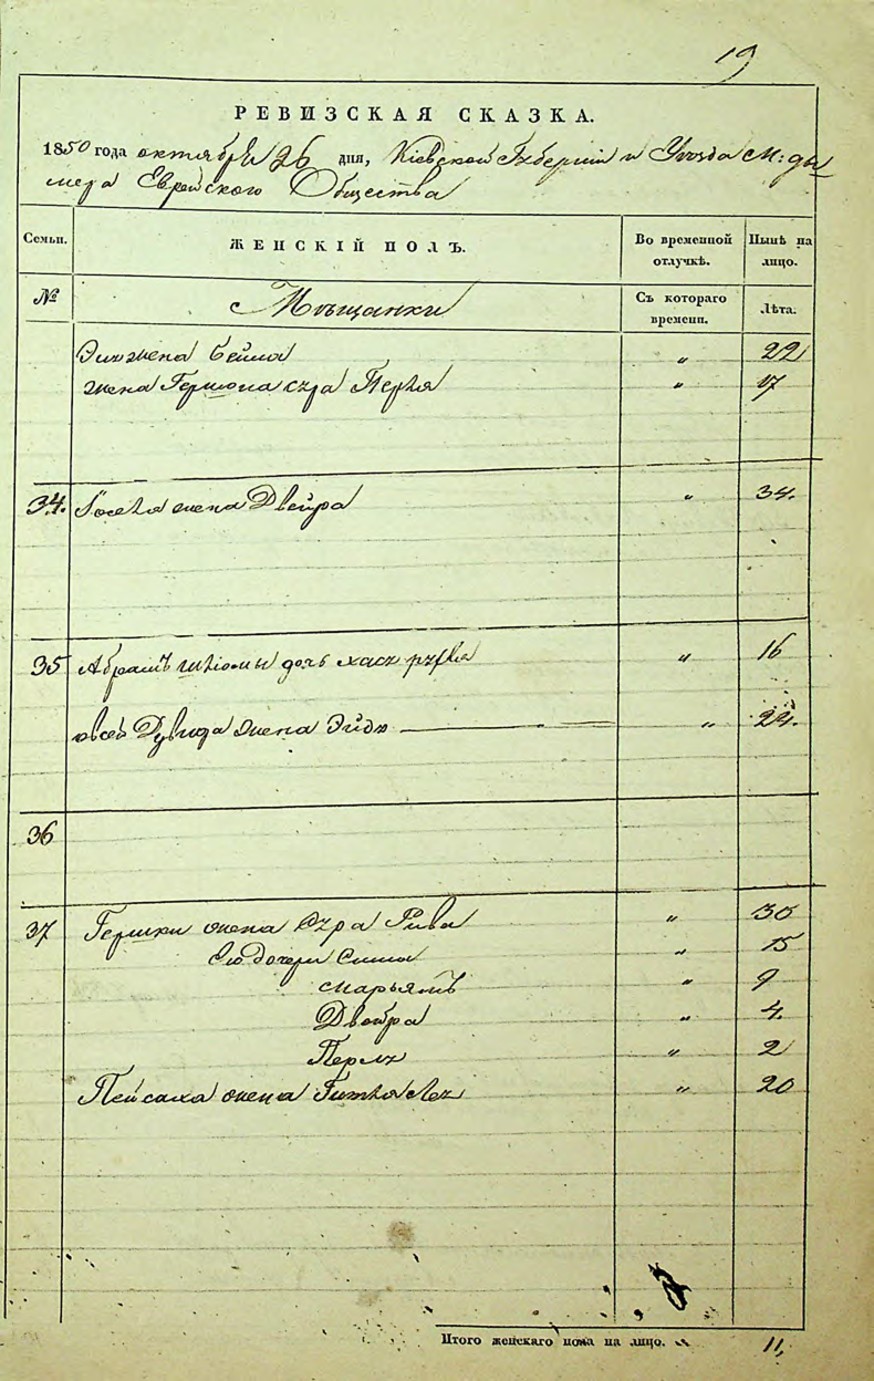 19
РЕВИЗСКАЯ СКАЗКА.
1850 года октября 26 дня, Кіевской Губерніи и Уѣзда М: Ды
мера Еврейского Общества
Семьи. ЖЕНСКІЙ ПОЛЪ. Во временной отлучкѣ. Нынѣ на лицо.
№ Мѣщанки Съ котораго времени. Лѣта.
жена Бейла „ 22
жена Гершона сура Перля „ 17
34. Іоселя жена Двейра „ 34.
35 Абрамъ дочь хася „ 16
Дувида жена Эйдя „ 22.
36
37 Гершки жена сура Рива „ 30
Ею дочери Сима „ 15
Марьямъ „ 9
Двойра „ 4.
Перля „ 2
Пейсаха жена Гитля Лея „ 20
Итого женскаго пола на лицо. „ 11,